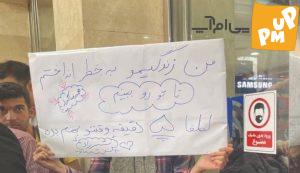 UP
PM
من زندگیمو به خطر انداختم
تا تو رو ببینم
لطفا ۵ دقیقه وقتتو بهم بده
SAMSUNG
ورود بدون ماسک
ممنوع